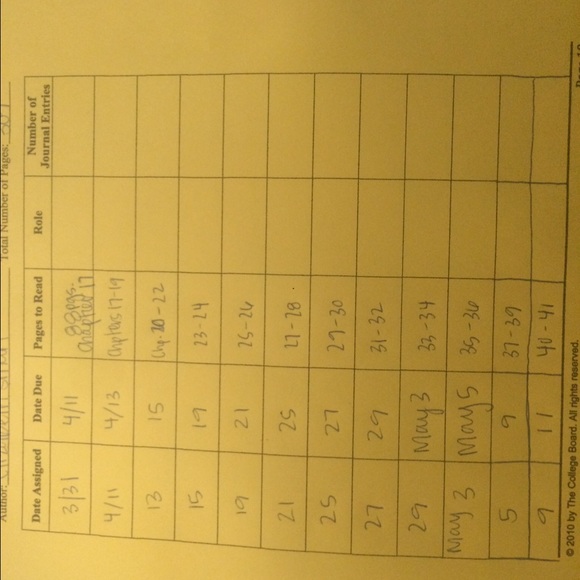 Author:
Total Number of Pages:
Date Assigned Date Due Pages to Read Role Number of Journal Entries
3/31 4/11 chapter 17
4/11 4/13 Chapters 17-19
13 15 Chp. 20-22
15 19 23-24
19 21 25-26
21 25 27-28
25 27 29-30
27 29 31-32
29 May 3 33-34
May 3 May 5 35-36
5 9 37-39
9 11 40-41
© 2010 by The College Board. All rights reserved.